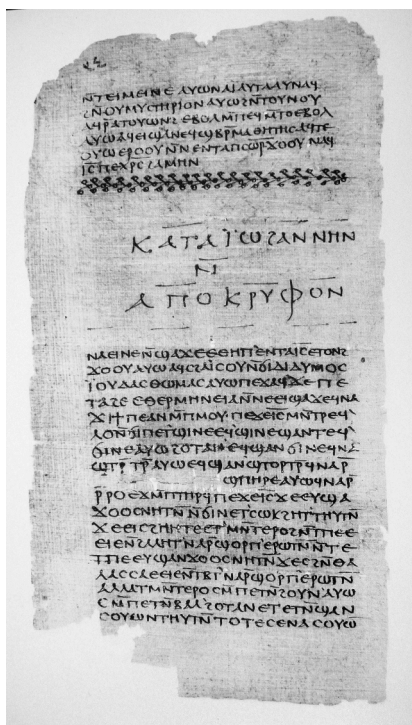 ⲛ̄ⲧⲉⲓⲙⲉⲓⲛⲉ ⲁⲩⲱ ⲛⲁⲓ̈ ⲁⲩⲧⲁⲁⲩ ⲛⲁϥ
ϩⲛ̄ⲛⲟⲩⲙⲩⲥⲧⲏⲣⲓⲟⲛ ⲁⲩⲱ ϩⲛ̄ⲧⲟⲩⲛⲟⲩ
ⲁϥⲣ̄ⲁⲧⲟⲩⲱⲛϩ ⲉⲃⲟⲗ ⲙ̄ⲡⲉϥⲙ̄ⲧⲟ ⲉⲃⲟⲗ
ⲁⲩⲱ ⲁϥⲉⲓ ϣⲁ ⲛⲉϥϣⲃⲣ̄ⲙⲁⲑⲏⲧⲏⲥ ⲁϥⲧⲉ
ⲟⲩⲱ ⲉⲣⲟⲟⲩ ⲛ̄ⲛⲉⲛⲧⲁⲡⲥⲱⲣ ϫⲟⲟⲩ ⲛⲁϥ
ⲓ̄ⲥ̄ ⲡⲉⲭ̄ⲣ̄ⲥ̄ ϩⲁⲙⲏⲛ
ⲕⲁⲧⲁ ⲓ̈ⲱϩⲁⲛⲛⲏⲛ
ⲛ̄
ⲁⲡⲟⲕⲣⲩⲫⲟⲛ
ⲛⲁⲉⲓ ⲛⲉ ⲛ̄ϣⲁϫⲉ ⲉⲑⲏⲡ ⲉⲛⲧⲁⲓ̄ⲥ̄ ⲉⲧⲟⲛϩ
ϫⲟⲟⲩ ⲁⲩⲱ ⲁϥⲥϩⲁⲓ̈ⲥⲟⲩ ⲛ̄ϭⲓ ⲇⲓⲇⲩⲙⲟⲥ
ⲓ̈ⲟⲩⲇⲁⲥ ⲑⲱⲙⲁⲥ ⲁⲩⲱ ⲡⲉϫⲁϥ ϫⲉ ⲡⲉ
ⲧⲁϩⲉ ⲉⲑⲉⲣⲙⲏⲛⲉⲓⲁ ⲛ̄ⲛⲉⲉⲓϣⲁϫⲉ ϥⲛⲁ
ϫⲓ ϯⲡⲉ ⲁⲛ ⲙ̄ⲡⲙⲟⲩ ⲡⲉϫⲉ ⲓ̄ⲥ̄ ⲙⲛ̄ⲧⲣⲉϥ
ⲗⲟ ⲛ̄ϭⲓ ⲡⲉⲧϣⲓⲛⲉ ⲉϥϣⲓⲛⲉ ϣⲁⲛⲧⲉϥ
ϭⲓⲛⲉ ⲁⲩⲱ ϩⲟⲧⲁⲛ ⲉϥϣⲁⲛϭⲓⲛⲉ ϥⲛⲁ
ϣⲧⲣ̄ⲧⲣ̄ ⲁⲩⲱ ⲉϥϣⲁⲛϣⲧⲟⲣⲧⲣ̄ ϥⲛⲁⲣ̄
ϣⲡⲏⲣⲉ ⲁⲩⲱ ϥⲛⲁⲣ̄
ⲣ̄ⲣⲟ ⲉϫⲙ̄ ⲡⲧⲏⲣϥ ⲡⲉϫⲉ ⲓ̄ⲥ̄ ϫⲉ ⲉⲩϣⲁ
ϫⲟⲟⲥ ⲛⲏⲧⲛ̄ ⲛ̄ϭⲓ ⲛⲉⲧⲥⲱⲕ ϩⲏⲧ ⲑⲩⲧⲛ̄
ϫⲉ ⲉⲓⲥϩⲏⲏⲧⲉ ⲉⲧⲙⲛ̄ⲧⲉⲣⲟ ϩⲛ̄ ⲧⲡⲉ
ⲉⲉⲓⲉ ⲛ̄ϩⲁⲗⲏⲧ ⲛⲁⲣ̄ϣⲟⲣⲡ ⲉⲣⲱⲧⲛ̄ ⲛ̄ⲧⲉ
ⲧⲡⲉ ⲉⲩϣⲁⲛϫⲟⲟⲥ ⲛⲏⲧⲛ̄ ϫⲉ ⲥϩⲛ̄ ⲑⲁ
ⲗⲁⲥⲥⲁ ⲉⲉⲓⲉ ⲛ̄ⲧⲃⲧ ⲛⲁⲣ̄ϣⲟⲣⲡ ⲉⲣⲱⲧⲛ̄
ⲁⲗⲗⲁ ⲧⲙⲛ̄ⲧⲉⲣⲟ ⲥⲙ̄ⲡⲉⲧⲛ̄ϩⲟⲩⲛ ⲁⲩⲱ
ⲥⲙ̄ⲡⲉⲧⲛ̄ⲃⲁⲗ ϩⲟⲧⲁⲛ ⲉⲧⲉⲧⲛ̄ϣⲁⲛ
ⲥⲟⲩⲱⲛ ⲧⲏⲩⲧⲛ̄ ⲧⲟⲧⲉ ⲥⲉⲛⲁⲥⲟⲩⲱ